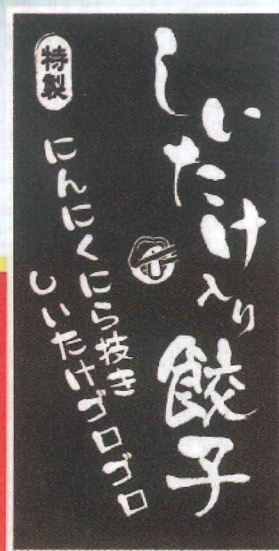 しいたけ入り餃子
特製
にんにくにら抜き
しいたけゴロゴロ